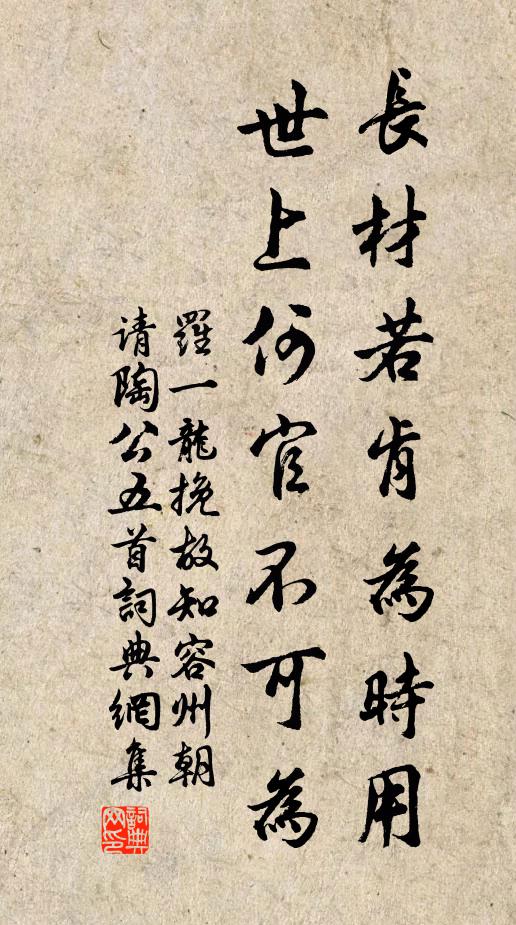 長材若肯為時用
世上何官不可為
羅一龍挽故知容州朝
请陶公五首詞典網集
詞典
网印